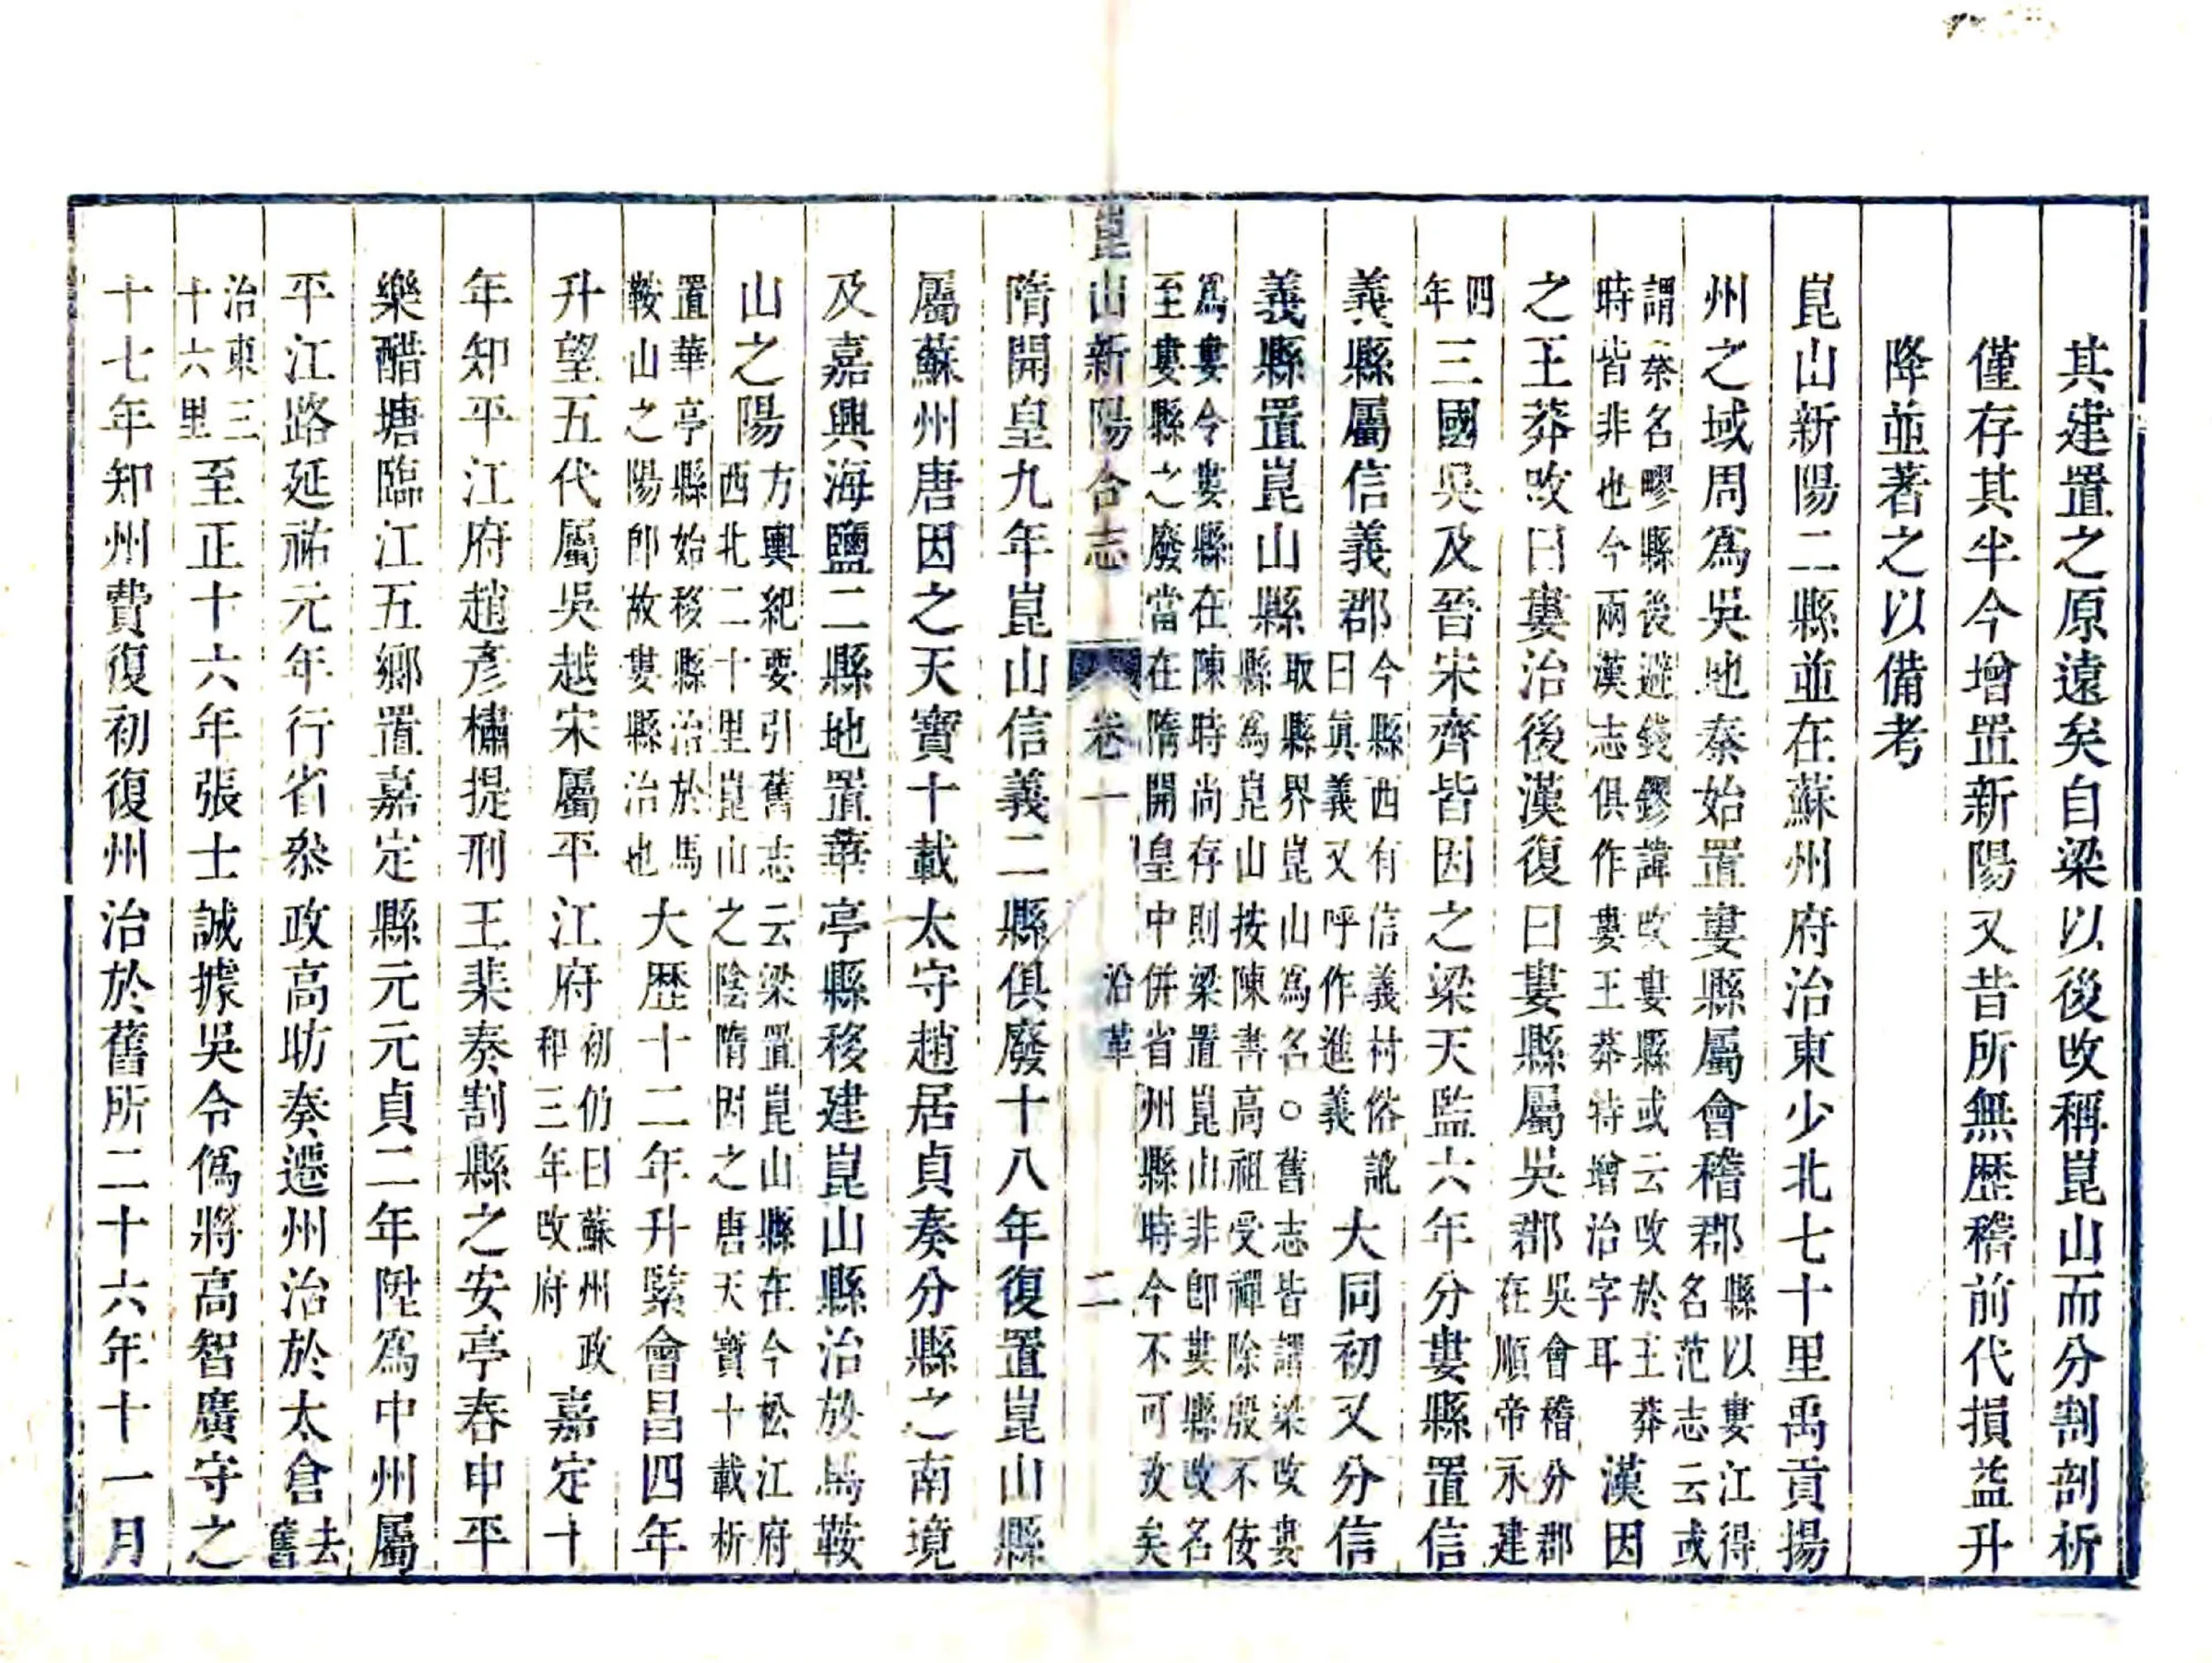 其建置之原遠矣自梁以後改稱崑山而分割剖析
僅存其半今增置新陽又昔所無歷稽前代損益升
降並著之以備考
崑山新陽二縣並在蘇州府治東少北七十里禹貢揚
州之域周爲吳地秦始置婁縣屬會稽郡縣以婁江得名范志云或
謂秦名疁縣後避錢鏐諱改婁縣或云改於王莽時皆非也今兩漢志俱作婁王莽特增治字耳漢因
之王莽改曰婁治後漢復曰婁縣屬吳郡吳會稽分郡在順帝永建
四年三國吳及晉宋齊皆因之梁天監六年分婁縣置信
義縣屬信義郡今縣西有信義村俗訛曰眞義又呼作進義大同初又分信
義縣置崑山縣取縣界崑山爲名○舊志皆謂梁改婁縣爲崑山按陳書高祖受禪除殷不佞
爲婁令婁縣在陳時尚存則梁置崑山非即婁縣改名至婁縣之廢當在隋開皇中併省州縣時今不可攷矣
崑山新陽合志 卷一 沿革 二
隋開皇九年崑山信義二縣俱廢十八年復置崑山縣
屬蘇州唐因之天寶十載太守趙居貞奏分縣之南境
及嘉興海鹽二縣地置華亭縣移建崑山縣治於馬鞍
山之陽方輿紀要引舊志云梁置崑山縣在今松江府西北二十里崑山之陰隋因之唐天寶十載析
置華亭縣始移縣治於馬鞍山之陽卽故婁縣治也大歷十二年升緊會昌四年
升望五代屬吳越宋屬平江府初仍曰蘇州政和三年改府嘉定十
年知平江府趙彥橚提刑王棐奏割縣之安亭春申平
樂醋塘臨江五鄉置嘉定縣元元貞二年陞爲中州屬
平江路延祐元年行省參政高昉奏遷州治於太倉去舊
治東三十六里至正十六年張士誠據吳令僞將高智廣守之
十七年知州費復初復州治於舊所二十六年十一月